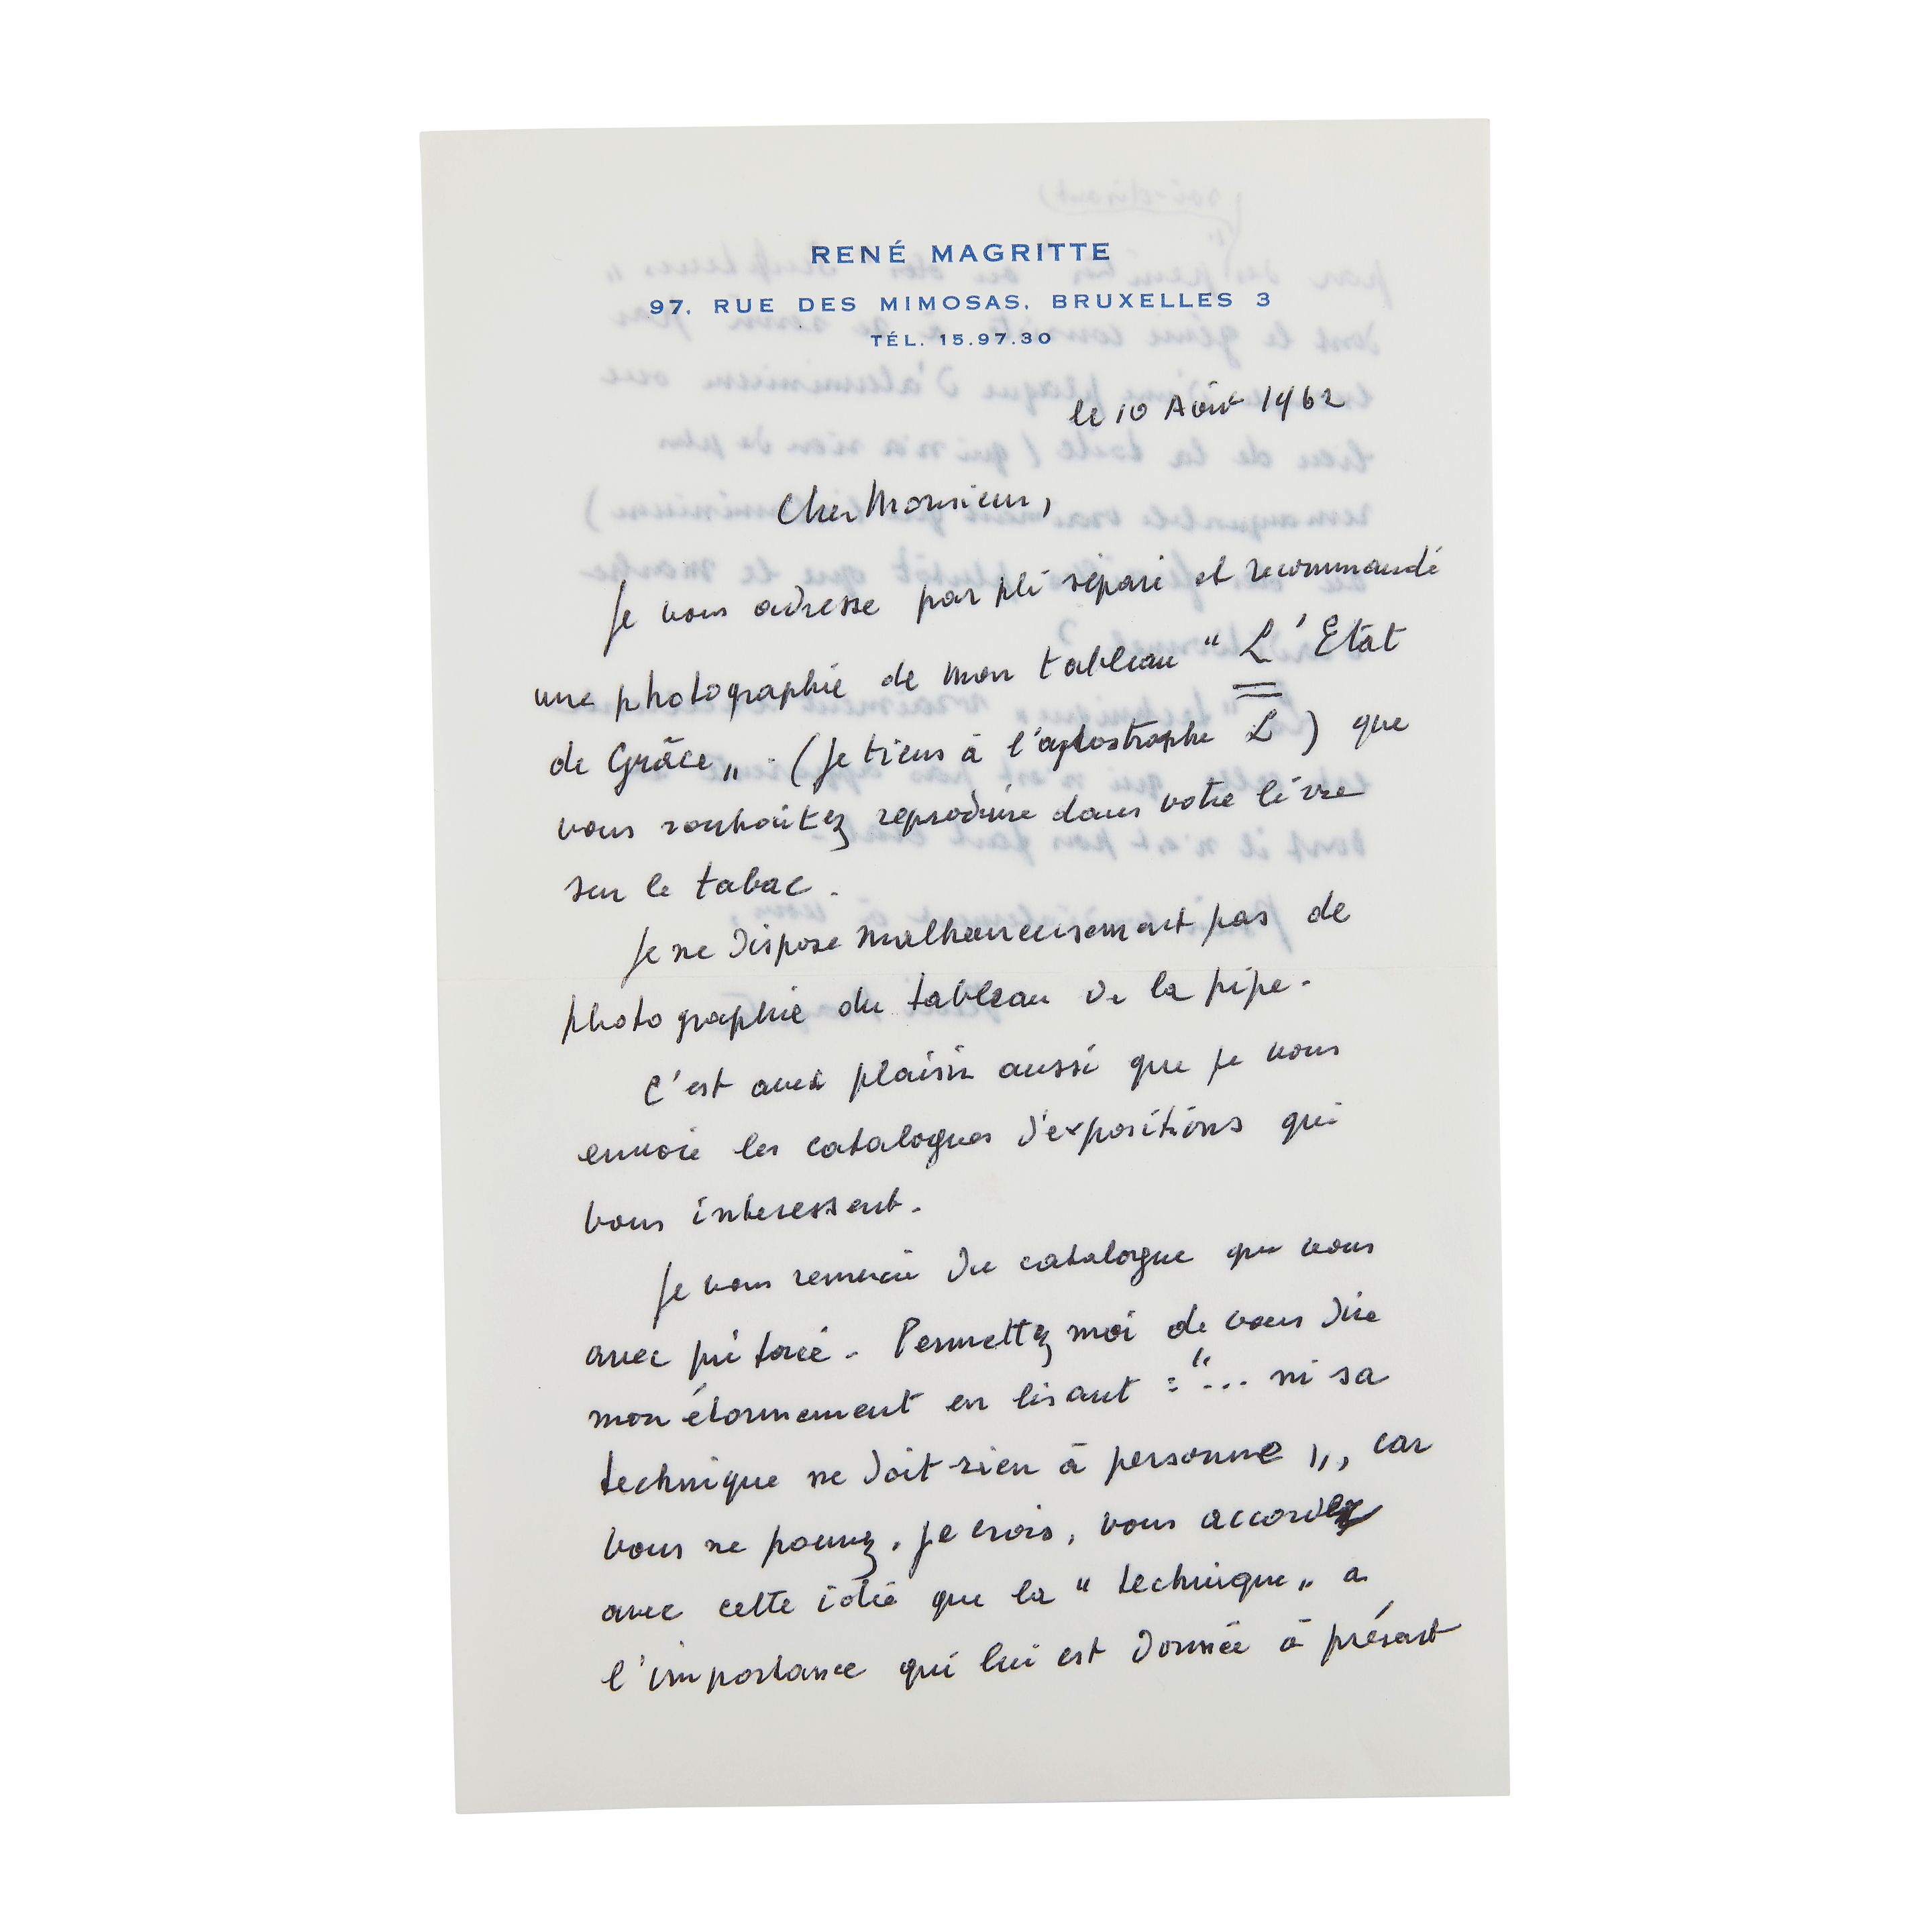 RENÉ MAGRITTE
97, RUE DES MIMOSAS, BRUXELLES 3
TÉL. 15.97.30
le 10 Août 1962
Cher Monsieur,
Je vous adresse par pli séparé et recommandé
une photographie de mon tableau " L'Etat
de Grâce „ . (Je tiens à l'apostrophe L ) que
vous souhaitez reproduire dans votre livre
sur le tabac .
Je ne dispose malheureusement pas de
photographie du tableau de la pipe .
C'est avec plaisir aussi que je vous
envoie les catalogues d'expositions qui
vous interessent .
Je vous remercie du catalogue que vous
avez préfacé . Permettez moi de vous dire
mon étonnement en lisant : "... ni sa
technique ne doit rien à personne „ , car
vous ne pouvez , je crois , vous accorder
avec cette idée que la " technique „ a
l'importance qui lui est donnée à présent